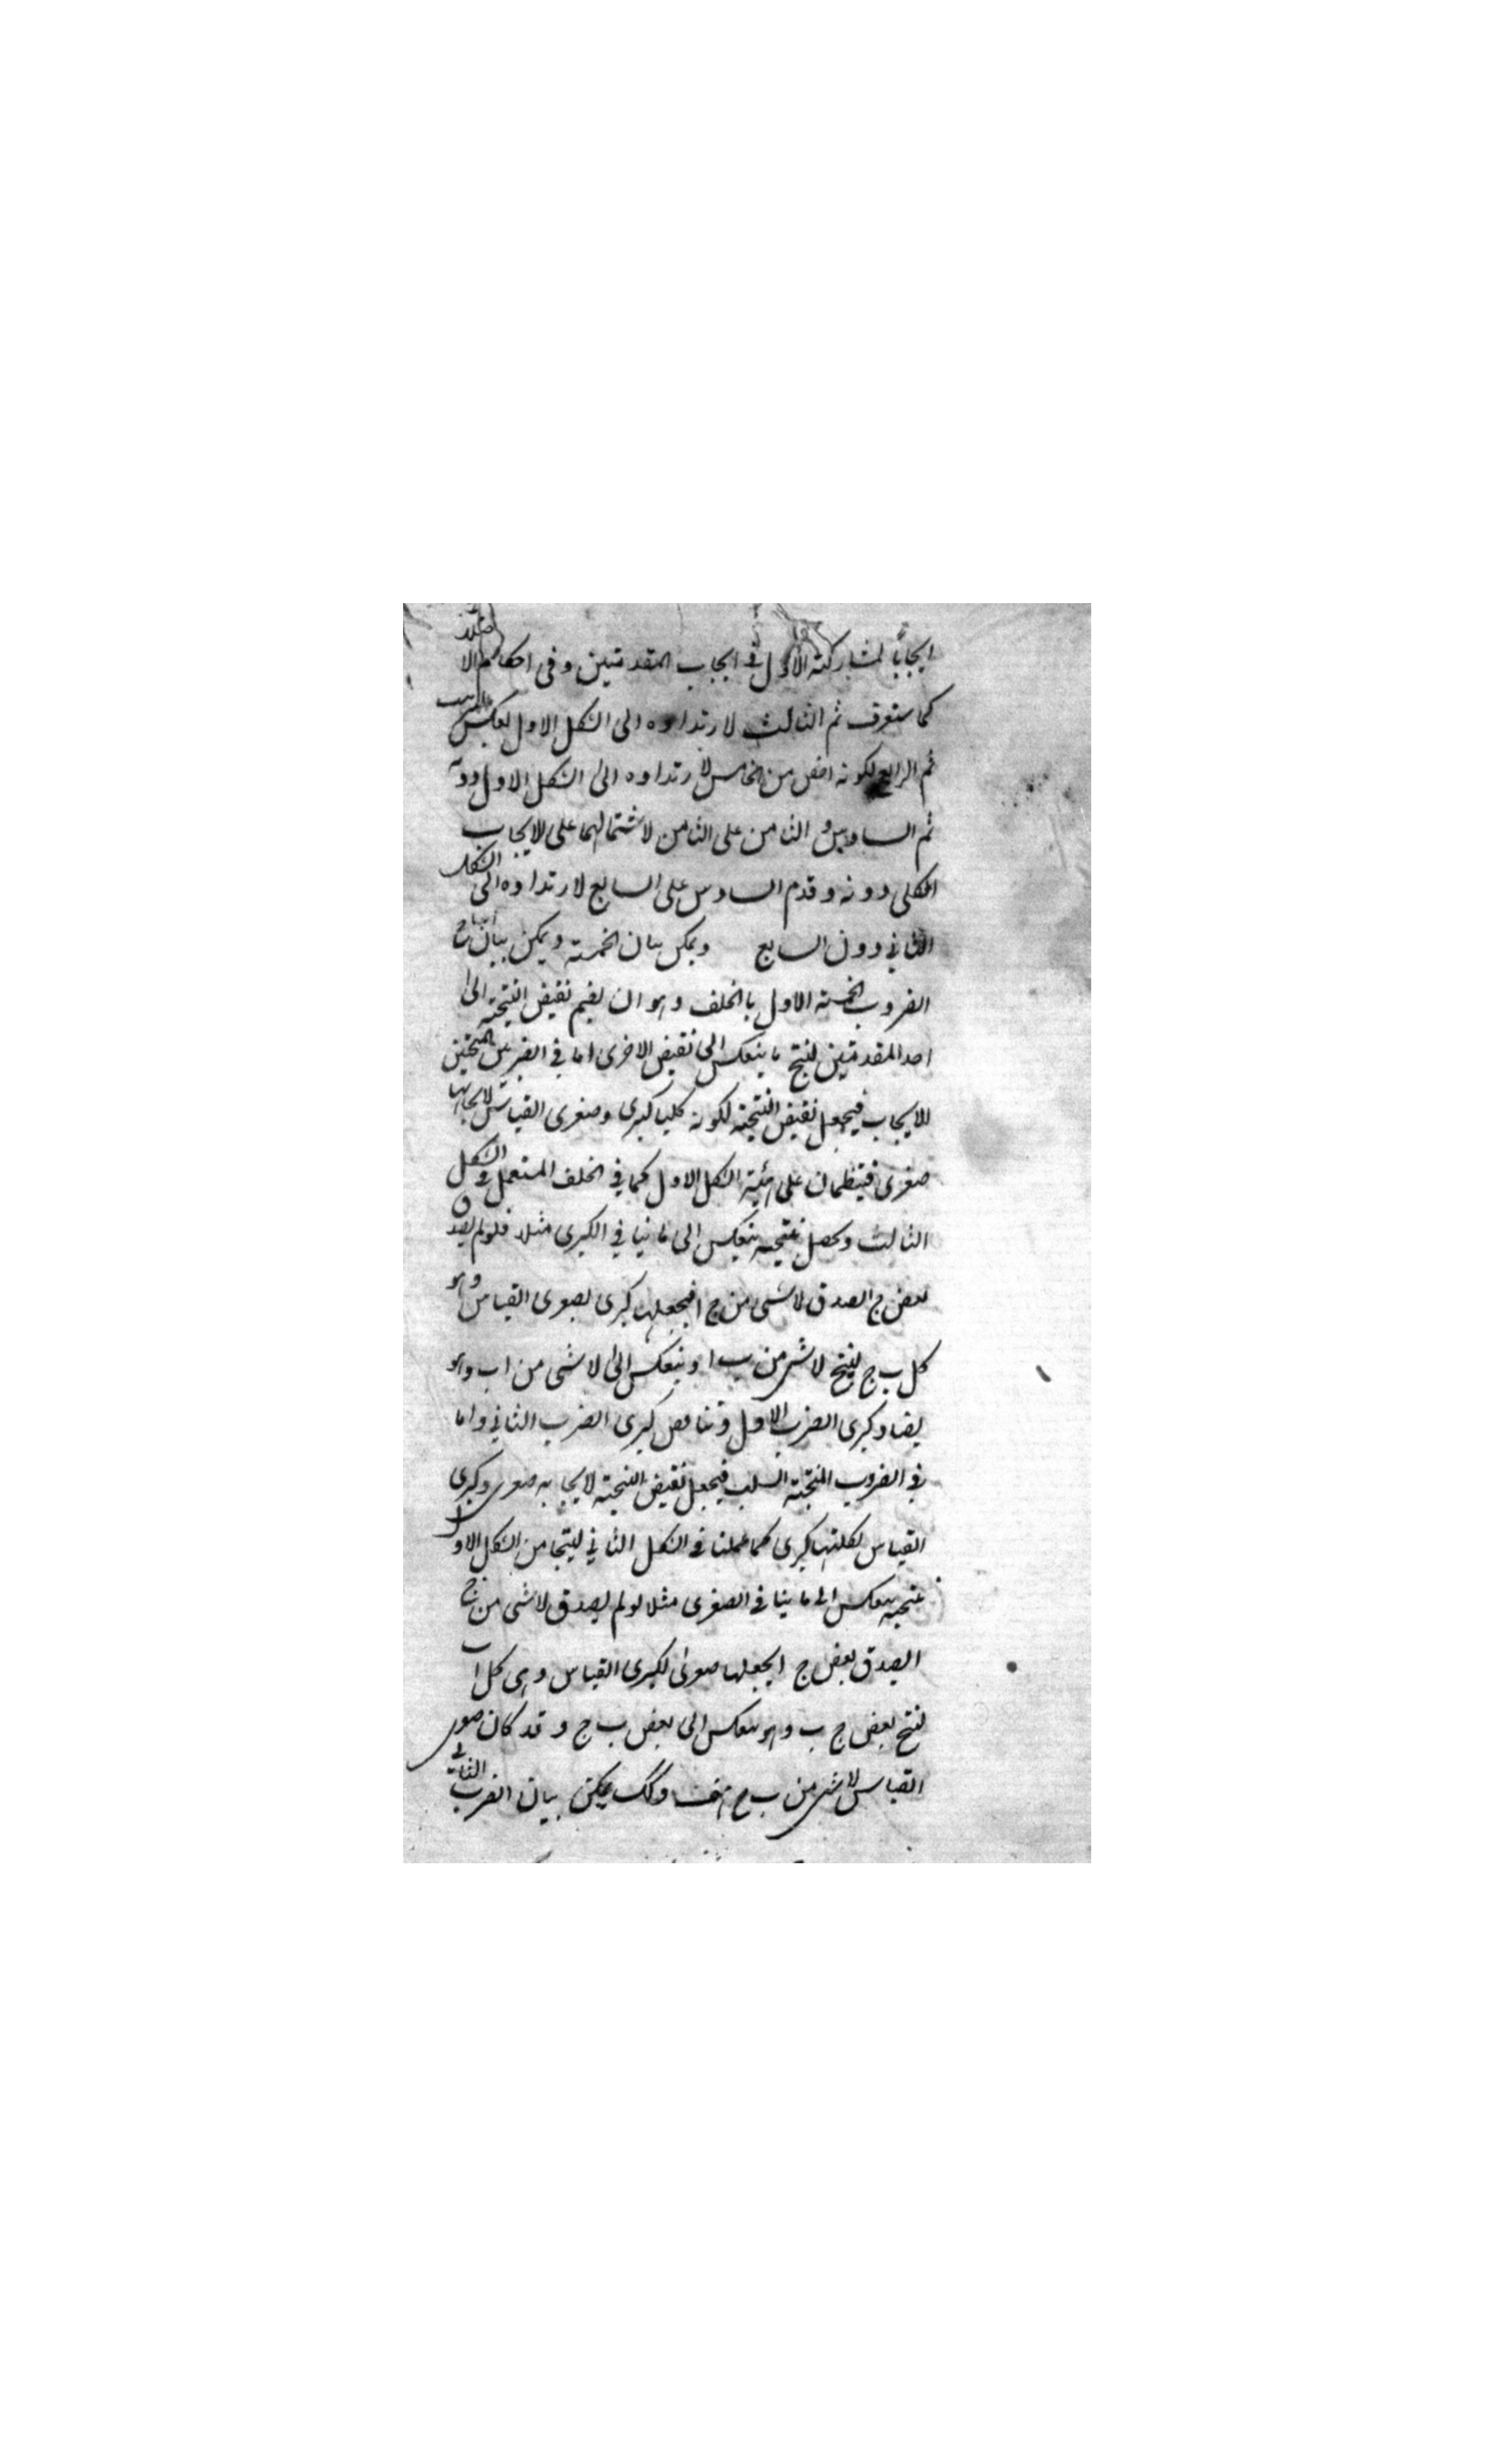 ايجابا لمشاركته الاول في ايجاب المقدمتين وفي احكام الاختلاط
كما ستعرف ثم الثالث لارتداده الى الشكل الاول بعكس الترتيب
ثم الرابع لكونه اخص من الخامس لارتداده الى الشكل الاول دونه
ثم السادس و الثامن على الثامن لاشتمالهما على الايجاب
الكلى دونه وقدم السادس على السابع لارتداده الى الشكل
الثاني دون السابع ويمكن بيان الخمسة ويمكن بيان انتاج
الضروب الخمسة الاول بالخلف وهو ان يضم نقيض النتيجة الى
احد المقدمتين لينتج ما ينعكس الى نقيض الاخرى اما في الضربين المنتجين
للايجاب فيجعل نقيض النتيجة لكونه كليا كبرى وصغرى القياس لايجابها
صغرى فينتظمان على هيئة الشكل الاول كما في الخلف المستعمل في الشكل
الثالث ويحصل نتيجه ينعكس الى ما ينافي الكبرى مثلا فلو لم يصدق
بعض ج ا لصدق لا شى من ج ا فيجعلها كبرى لصغرى القياس وهو
كل ب ج لينتج لا شى من ب ا وينعكس الى لا شى من ا ب وهو
يضاد كبرى الضرب الاول وتناقض كبرى الضرب الثاني واما
في الضروب المنتجة السلب فيجعل نقيض النتيجة لايجابه صغرى وكبرى
القياس لكليتها كبرى كما عملنا في الشكل الثاني لينتجا من الشكل الاول
نتيجه ينعكس الى ما ينافي الصغرى مثلا لو لم يصدق لا شى من ج ا
لصدق بعض ج ا يجعلها صغرى لكبرى القياس وهى كل ا ب
لينتج بعض ج ب وهو ينعكس الى بعض ب ج وقد كان صغرى
القياس لا شى من ب ج هف وكك يمكن بيان الضرب الثاني